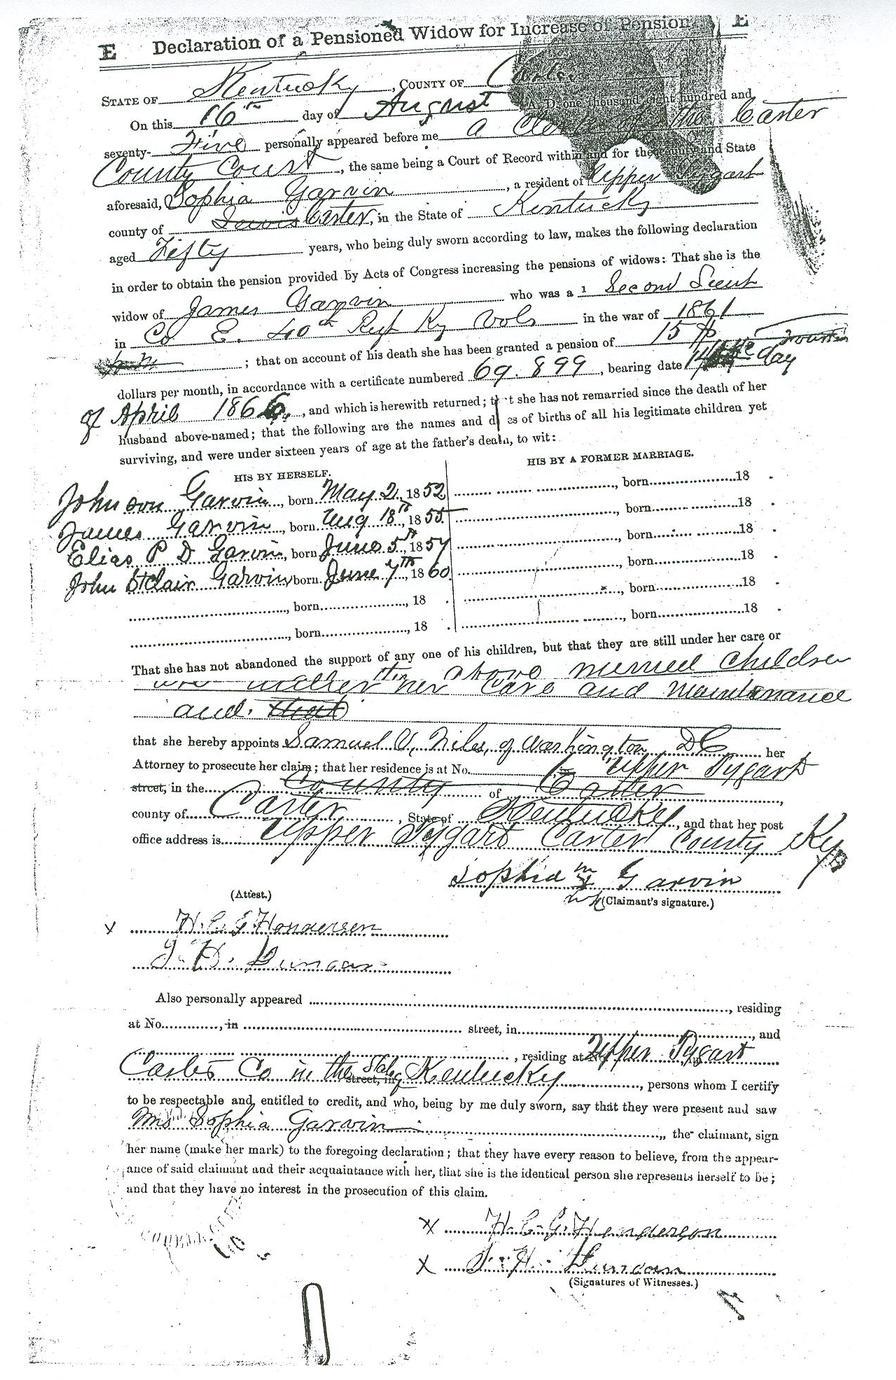 E Declaration of a Pensioned Widow for Increase of Pension E
STATE OF Kentucky, COUNTY OF Carter
On this 16th day of August A. D. one thousand eight hundred and
seventy- Five personally appeared before me a Clerk of the Carter
County Court, the same being a Court of Record within and for the county and State
aforesaid, Sophia Garvin, a resident of Upper Tygart
county of Lewis Carter, in the State of Kentucky
aged Fifty years, who being duly sworn according to law, makes the following declaration
in order to obtain the pension provided by Acts of Congress increasing the pensions of widows: That she is the
widow of James Garvin who was a Second Lieut
in Co E. 40th Regt Ky Vols in the war of 1861
; that on account of his death she has been granted a pension of 15
dollars per month, in accordance with a certificate numbered 69.899, bearing date day
of April 1866, and which is herewith returned; that she has not remarried since the death of her
husband above-named; that the following are the names and dates of births of all his legitimate children yet
surviving, and were under sixteen years of age at the father's death, to wit:
HIS BY HERSELF. HIS BY A FORMER MARRIAGE.
Johnson Garvin, born May 2, 1852 , born 18 .
James Garvin, born Aug 18th, 1855 , born 18 .
Elias P D Garvin, born June 5th, 1857 , born 18 .
John StClair Garvin born June 7th, 1860 , born 18 .
, born , 18 . , born 18 .
, born , 18 . , born 18 .
That she has not abandoned the support of any one of his children, but that they are still under her care or
above children
her care and maintenance
and that
that she hereby appoints Samuel V. Niles, of Washington DC her
Attorney to prosecute her claim; that her residence is at No. Upper Tygart
street, in the County of Carter,
county of Carter, State of Kentucky, and that her post
office address is Upper Tygart Carter County Ky
Sophia Garvin
(Attest.) (Claimant's signature.)
x H. C. G. Henderson
J. H. Duncan
Also personally appeared , residing
at No. , in street, in , and
, residing at Upper Tygart
Carter Co in the State of street, in Kentucky, persons whom I certify
to be respectable and entitled to credit, and who, being by me duly sworn, say that they were present and saw
Mrs Sophia Garvin, the claimant, sign
her name (make her mark) to the foregoing declaration; that they have every reason to believe, from the appear-
ance of said claimant and their acquaintance with her, that she is the identical person she represents herself to be;
and that they have no interest in the prosecution of this claim.
x H. C. G. Henderson
x J. H. Duncan
(Signatures of Witnesses.)